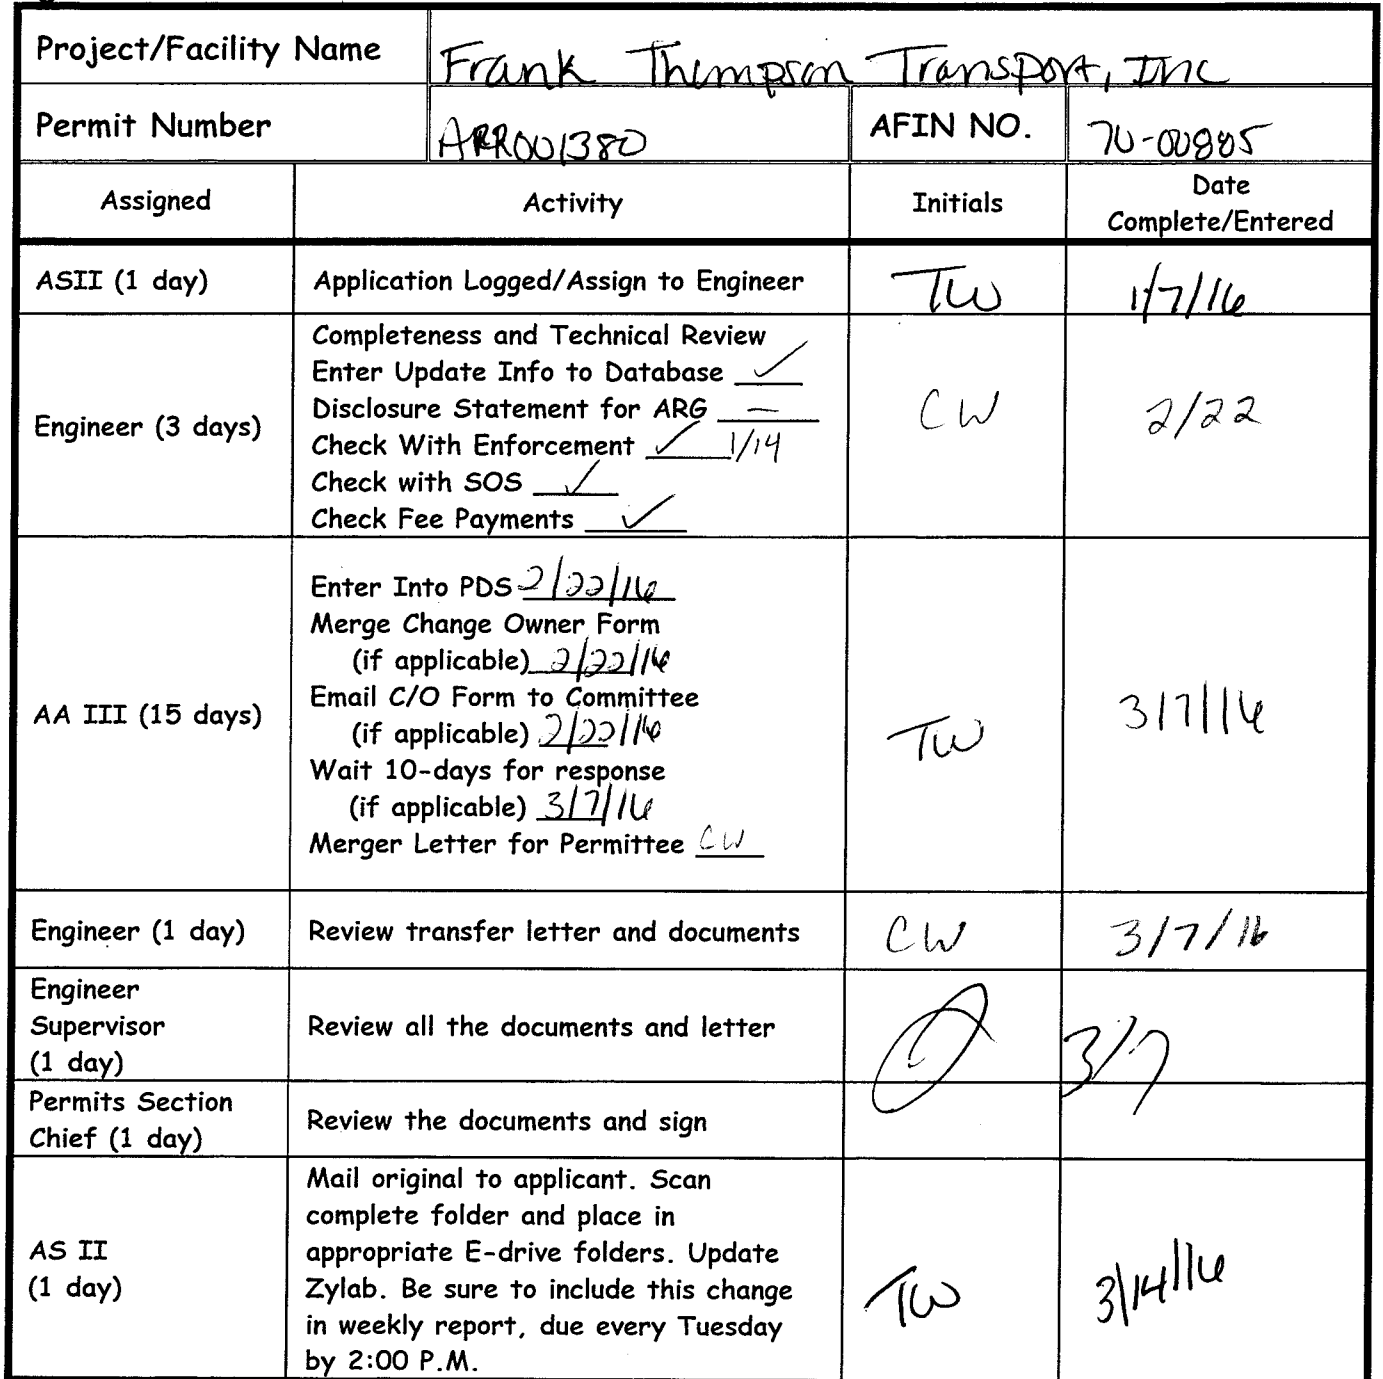 Project/Facility Name Frank Thompson Transport, Inc
Permit Number ARR001380 AFIN NO. 70-00885
Assigned Activity Initials Date
Complete/Entered
ASII (1 day) Application Logged/Assign to Engineer TW 1/7/16
Engineer (3 days) CW 2/22
Completeness and Technical Review
Enter Update Info to Database ✓
Disclosure Statement for ARG —
Check With Enforcement ✓ 1/14
Check with SOS ✓
Check Fee Payments ✓
AA III (15 days) TW 3/7/16
Enter Into PDS 2/22/16
Merge Change Owner Form
(if applicable) 2/22/16
Email C/O Form to Committee
(if applicable) 2/22/16
Wait 10-days for response
(if applicable) 3/7/16
Merger Letter for Permittee CW
Engineer (1 day) Review transfer letter and documents CW 3/7/16
Engineer
Supervisor
(1 day)
Review all the documents and letter 3/7
Permits Section
Chief (1 day)
Review the documents and sign
AS II
(1 day)
Mail original to applicant. Scan
complete folder and place in
appropriate E-drive folders. Update
Zylab. Be sure to include this change
in weekly report, due every Tuesday
by 2:00 P.M.
TW 3/14/16